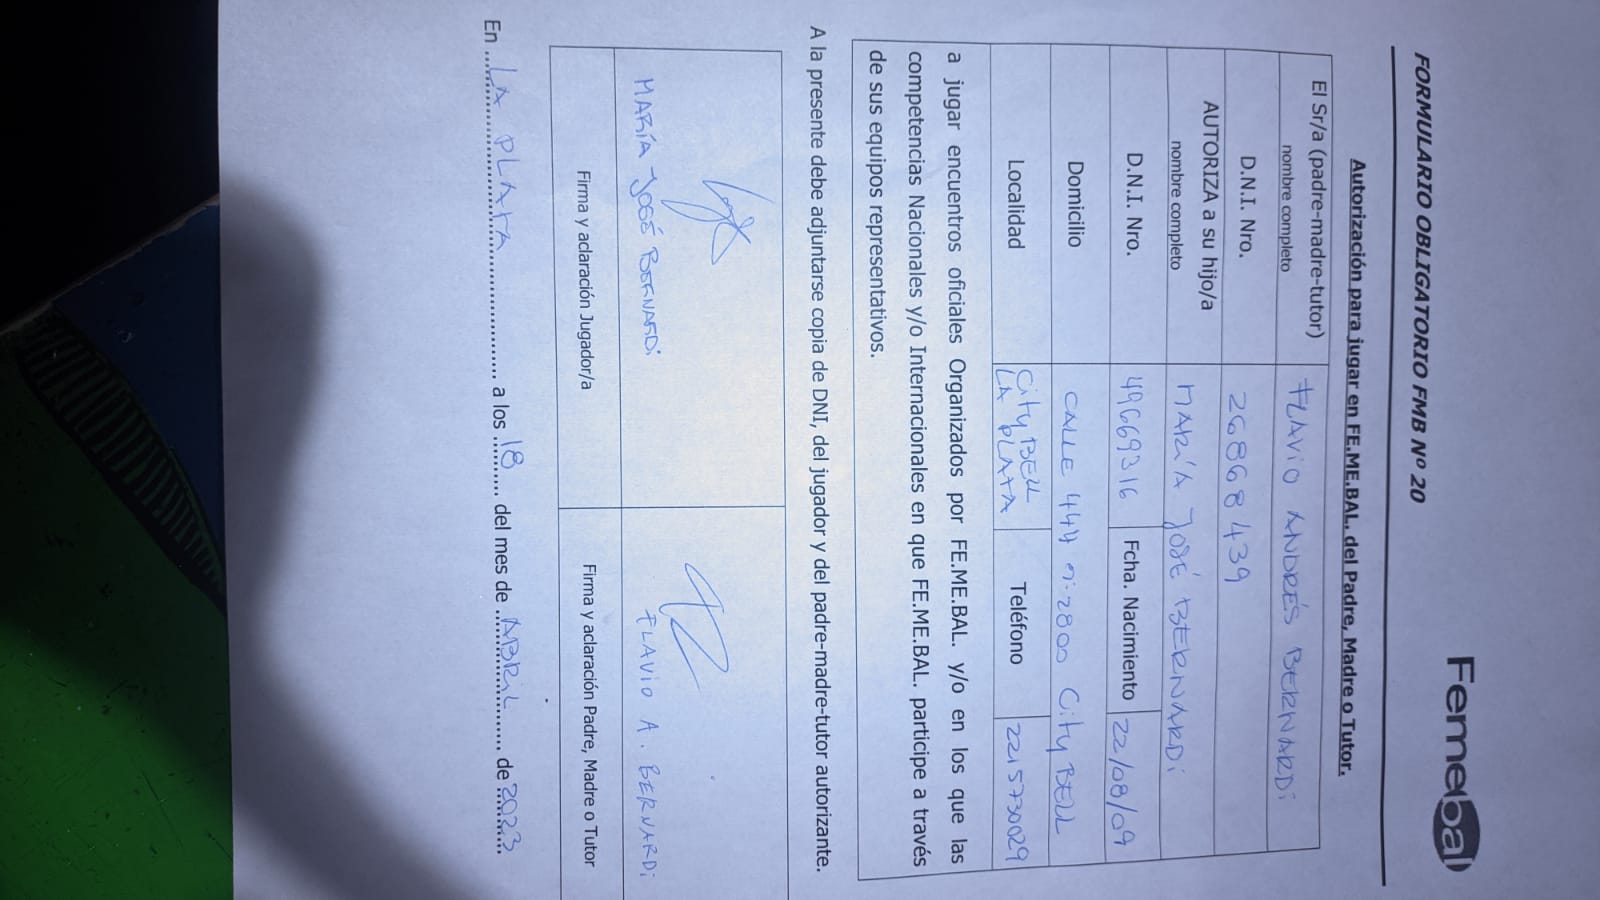 Femebal
FORMULARIO OBLIGATORIO FMB Nº 20
Autorización para jugar en FE.ME.BAL. del Padre, Madre o Tutor.
El Sr/a (padre-madre-tutor) nombre completo FLAVIO ANDRÉS BERNARDi
D.N.I. Nro. 26868439
AUTORIZA a su hijo/a nombre completo MARÍA JOSÉ BERNARDi
D.N.I. Nro. 49669316 Fcha. Nacimiento 22/08/09
Domicilio CALLE 444 n:2800 City BELL
Localidad City BELL LA PLATA Teléfono 2215730029
a jugar encuentros oficiales Organizados por FE.ME.BAL. y/o en los que las
competencias Nacionales y/o Internacionales en que FE.ME.BAL. participe a través
de sus equipos representativos.
A la presente debe adjuntarse copia de DNI, del jugador y del padre-madre-tutor autorizante.
MARÍA JOSÉ BERNARDi FLAVIO A. BERNARDi
Firma y aclaración Jugador/a Firma y aclaración Padre, Madre o Tutor
En LA PLATA a los 18 del mes de ABRIL de 2023